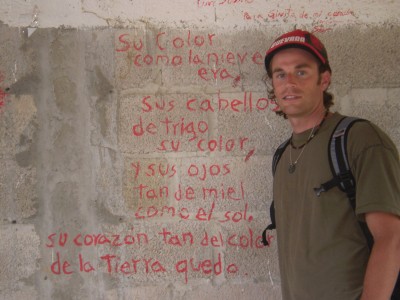 Su Color
como la nieve
era,
Sus cabellos
de trigo
su color,
y sus ojos
tan de miel
como el sol.
su corazón tan del color
de la Tierra quedo.